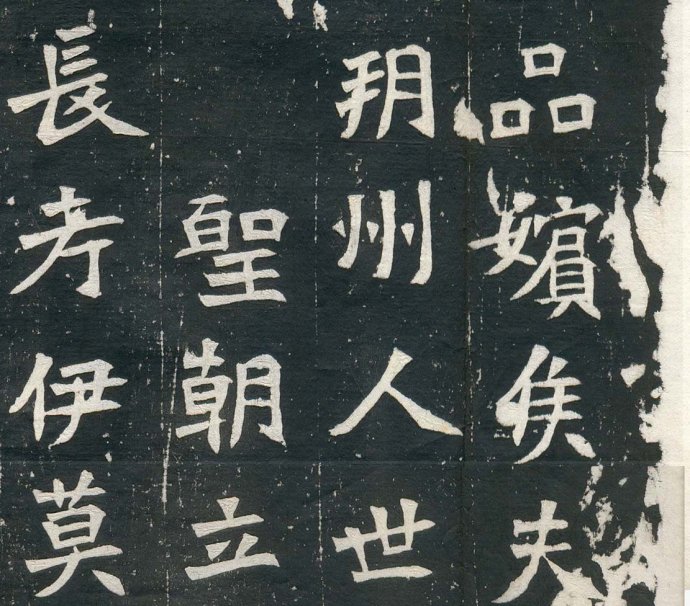 品嬪侯夫
玥州人世
聖朝立
長考伊莫